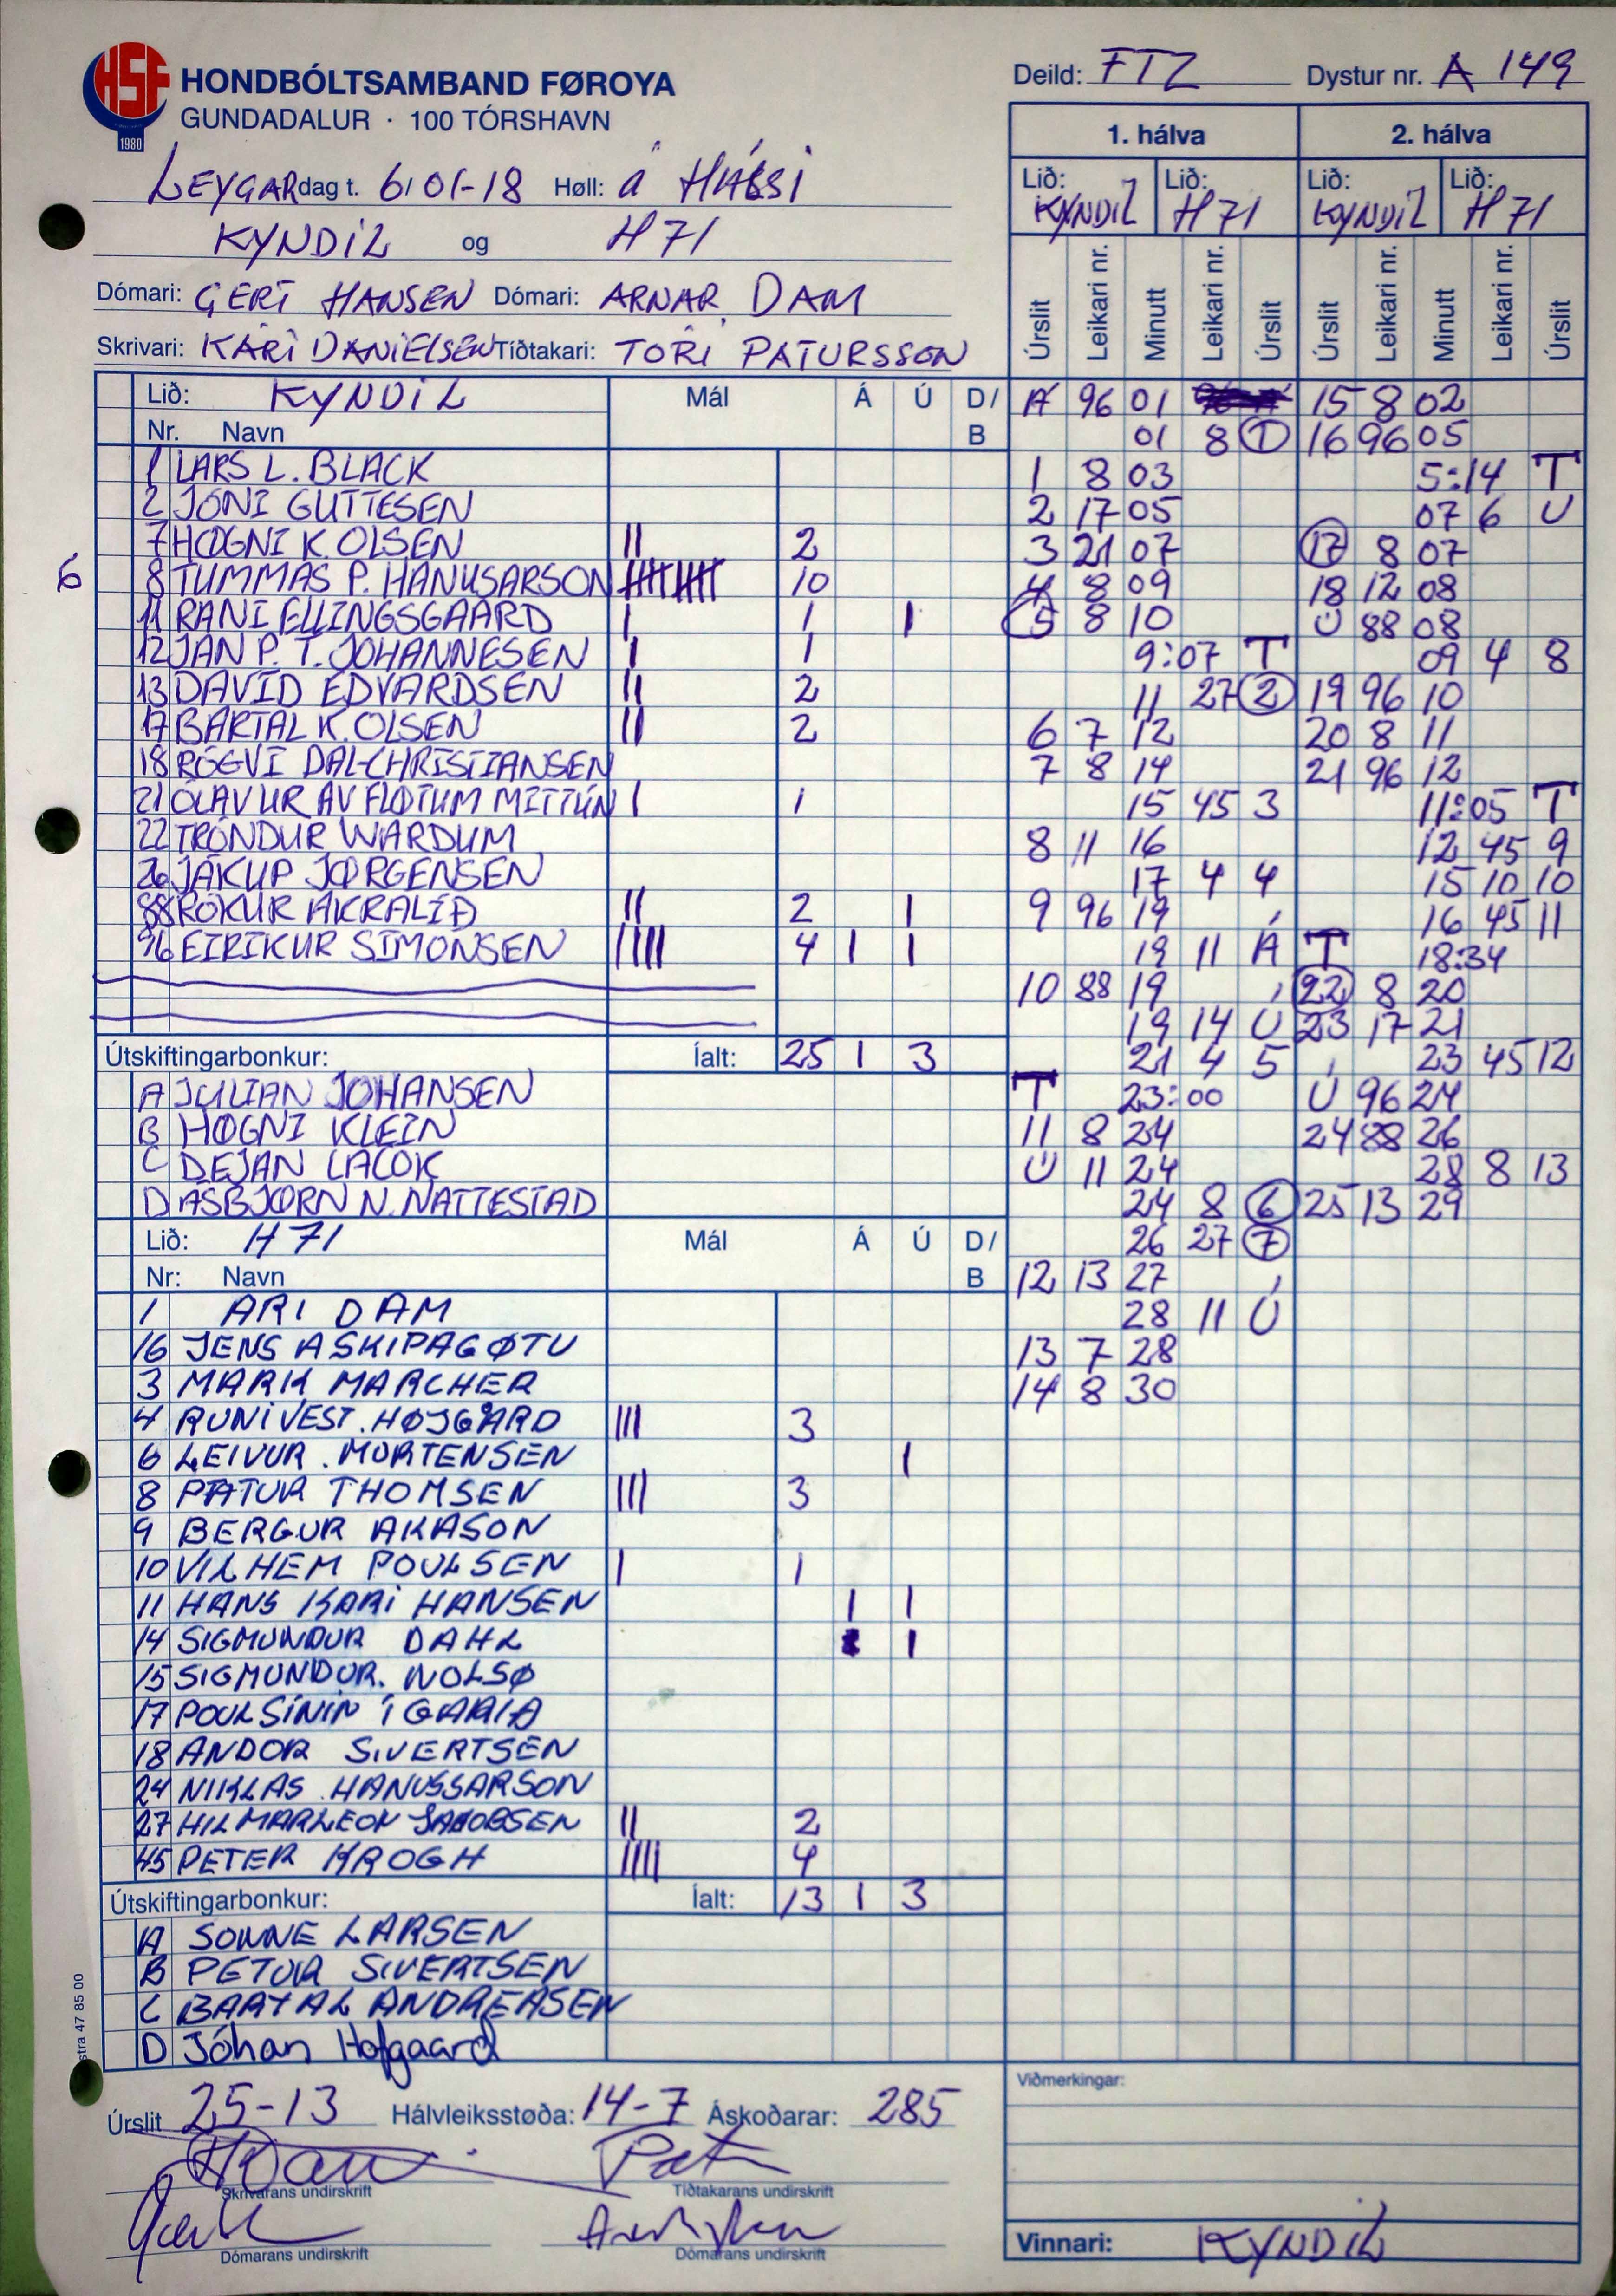 HSF
1980
HONDBÓLTSAMBAND FØROYA
GUNDADALUR · 100 TÓRSHAVN
Deild: FTZ Dystur nr. A 149
LEYGARdag t. 6/01-18 Høll: á HÁLSI
KYNDIL og H71
Dómari: GERT HANSEN Dómari: ARNAR DAM
Skrivari: KÁRI DANIELSEN Tíðtakari: TÓRI PATURSSON
1. hálva 2. hálva
Lið: KYNDIL Lið: H71 Lið: KYNDIL Lið: H71
Úrslit Leikari nr. Minutt Leikari nr. Úrslit Úrslit Leikari nr. Minutt Leikari nr. Úrslit
Lið: KYNDIL Mál Á Ú D/B
Nr. Navn
1 LARS L. BLACK
2 JÓNI GUTTESEN
7 HØGNI K. OLSEN II 2
6
8 TUMMAS P. HANUSARSON 10
11 RANI ELLINGSGAARD I 1 I
12 JAN P. T. JOHANNESEN I 1
13 DAVID EDVARDSEN II 2
17 BARTAL K. OLSEN II 2
18 RÓGVI DAL-CHRISTIANSEN
21 ÓLAVUR AV FLØTUM MITTÚN I 1
22 TRÓNDUR WARDUM
26 JÁKUP JØRGENSEN
88 RÓKUR AKRALÍÐ II 2 I
96 EIRIKUR SIMONSEN IIII 4 I I
Útskiftingarbonkur: Íalt: 25 1 3
A JULIAN JOHANSEN
B HØGNI KLEIN
C DEJAN LACOK
D ASBJØRN N. NATTESTAD
Lið: H71 Mál Á Ú D/B
Nr: Navn
1 ARI DAM
16 JENS ASKIPAGØTU
3 MARK MARCHER
4 RUNI VEST. HØJGÅRD III 3
6 LEIVUR. MORTENSEN I
8 PÆTUR THOMSEN III 3
9 BERGUR AKASON
10 VILHEM POULSEN I 1
11 HANS KARI HANSEN I I
14 SIGMUNDUR DAHL I
15 SIGMUNDUR. NOLSØ
17 POUL
18 ANDOR SIVERTSEN
24 NIKLAS. HANUSSARSON
27 HILMARLEON JAKOBSEN II 2
45 PETER KROGH IIII 4
Útskiftingarbonkur: Íalt: 13 1 3
A SONNE LARSEN
B PETUR SIVERTSEN
C BARTAL ANDREASEN
D Jóhan Hofgaard
A 96 01
01 8 1
1 8 03
2 17 05
3 21 07
4 8 09
5 8 10
9:07 T
11 27 2
6 7 12
7 8 14
15 45 3
8 11 16
17 4 4
9 96 19
19 11 Á
10 88 19
19 14 Ú
21 4 5
T 23:00
11 8 24
Ú 11 24
24 8 6
26 27 7
12 13 27
28 11 Ú
13 7 28
14 8 30
15 8 02
16 96 05
5:14 T
07 6 U
17 8 07
18 12 08
Ú 88 08
09 4 8
19 96 10
20 8 11
21 96 12
11:05 T
12 45 9
15 10 10
16 45 11
T 18:34
22 8 20
23 17 21
23 45 12
Ú 96 24
24 88 26
28 8 13
25 13 29
stra 47 85 00
Úrslit 25-13 Hálvleiksstøða: 14-7 Áskoðarar: 285
Skrivarans undirskrift Tíðtakarans undirskrift
Dómarans undirskrift Dómarans undirskrift
Viðmerkingar:
Vinnari: KYNDIL